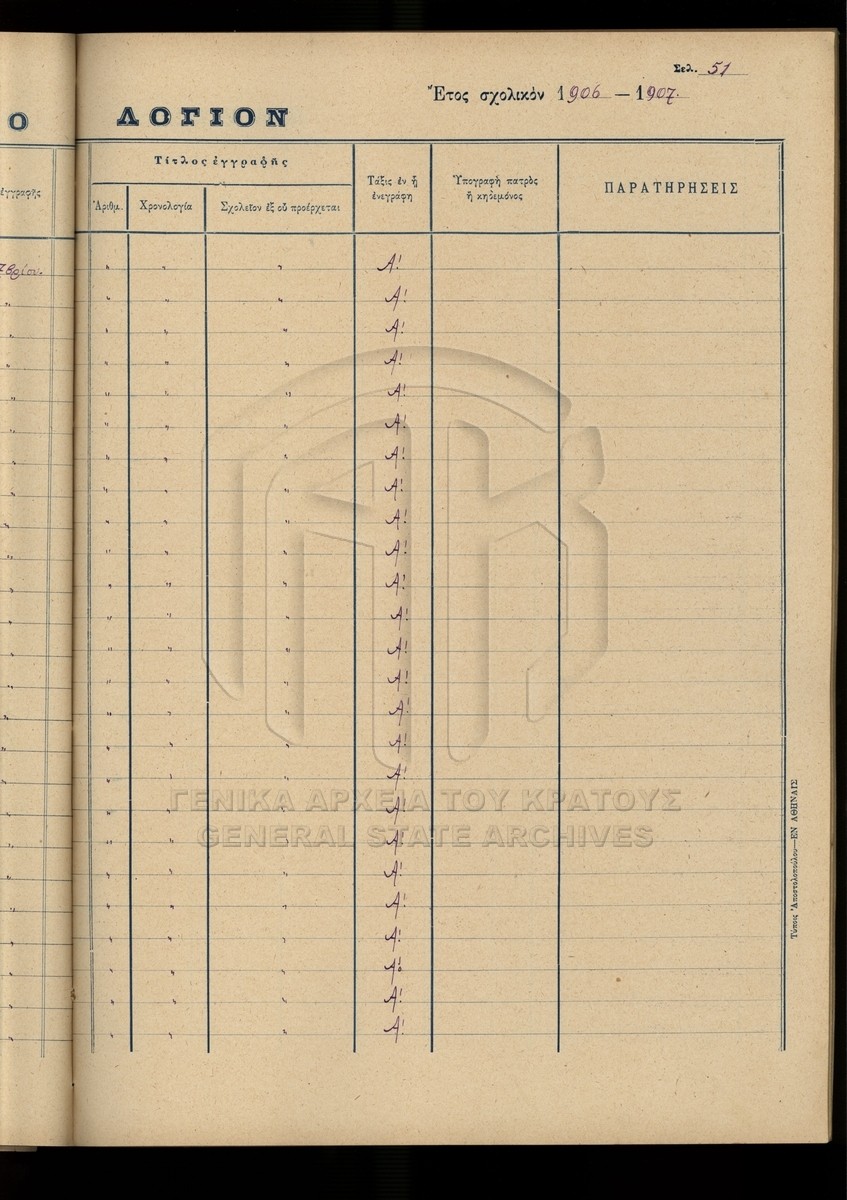 Σελ. 51
Ἔτος σχολικόν 1906 — 1907.
Ο ΛΟΓΙΟΝ
ἐγγραφῆς
Τίτλος ἐγγραφῆς
Ἀριθμ. Χρονολογία Σχολεῖον ἐξ οὗ προέρχεται
Τάξις ἐν ᾗ
ἐνεγράφη
Ὑπογραφὴ πατρὸς
ἢ κηδεμόνος
ΠΑΡΑΤΗΡΗΣΕΙΣ
7βρίου. " " " Α!
" " " " Α!
" " " " Α!
" " " " Α!
" " " " Α!
" " " " Α!
" " " " Α!
" " " " Α!
" " " " Α!
" " " " Α!
" " " " Α!
" " " " Α!
" " " " Α!
" " " " Α!
" " " " Α!
" " " " Α!
" " " " Α!
" " " " Α!
" " " " Α!
" " " " Α!
" " " " Α!
" " " " Α!
" " " " Α!
" " " " Α!
" " " " Α!
ΓΕΝΙΚΑ ΑΡΧΕΙΑ ΤΟΥ ΚΡΑΤΟΥΣ
GENERAL STATE ARCHIVES
Τύποις Ἀποστολοπούλου—ΕΝ ΑΘΗΝΑΙΣ